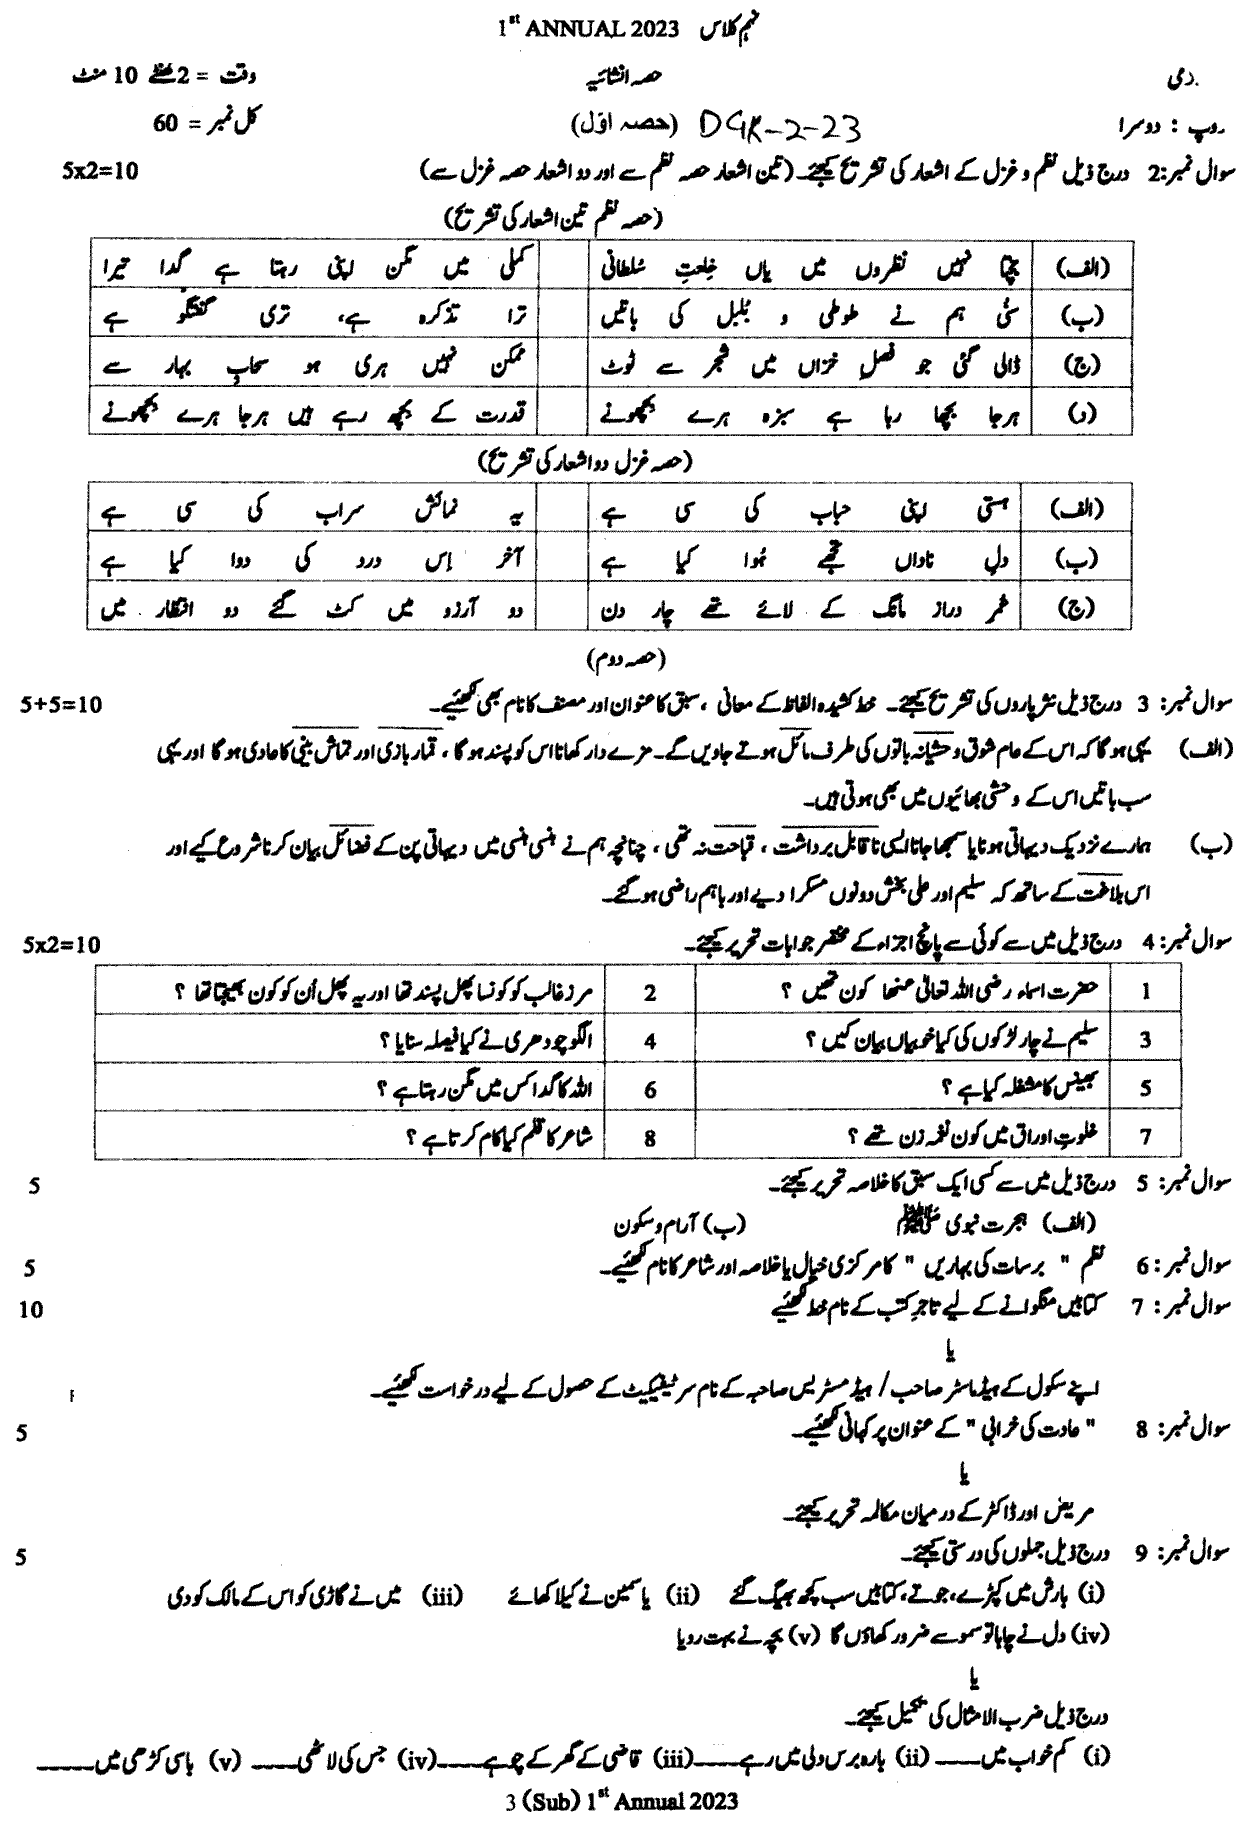 نہم کلاس 1st ANNUAL 2023
حصہ انشائیہ وقت = 2 گھنٹے 10 منٹ
روپ : دوسرا (حصہ اوّل) DGK-2-23 کل نمبر = 60
سوال نمبر:2 درج ذیل نظم و غزل کے اشعار کی تشریح کیجئے۔ (تین اشعار حصہ نظم سے اور دو اشعار حصہ غزل سے) 5x2=10
(حصہ نظم تین اشعار کی تشریح)
(الف) جچتا نہیں نظروں میں یاں خِلعتِ سُلطانی کملی میں مگن اپنی رہتا ہے گدا تیرا
(ب) سُنی ہم نے طوطی و بُلبل کی باتیں ترا تذکرہ ہے، تری گفتگو ہے
(ج) ڈالی گئی جو فصلِ خزاں میں شجر سے ٹوٹ ممکن نہیں ہری ہو سحابِ بہار سے
(د) ہرجا بچھا رہا ہے سبزہ ہرے بچھونے قدرت کے بچھ رہے ہیں ہرجا ہرے بچھونے
(حصہ غزل دو اشعار کی تشریح)
(الف) ہستی اپنی حباب کی سی ہے یہ نمائش سراب کی سی ہے
(ب) دلِ ناداں تجھے ہُوا کیا ہے آخر اِس درد کی دوا کیا ہے
(ج) عُمرِ دراز مانگ کے لائے تھے چار دن دو آرزو میں کٹ گئے دو انتظار میں
(حصہ دوم)
سوال نمبر: 3 درج ذیل نثر پاروں کی تشریح کیجئے۔ خط کشیدہ الفاظ کے معانی ، سبق کا عنوان اور مصنف کا نام بھی لکھئیے۔ 5+5=10
(الف) یہی ہوگا کہ اس کے عام شوق وحشیانہ باتوں کی طرف مائل ہوتے جاویں گے۔ مزے دار کھانا اس کو پسند ہوگا ، قمار بازی اور تماش بینی کا عادی ہوگا اور یہی
سب باتیں اس کے وحشی بھائیوں میں بھی ہوتی ہیں۔
(ب) ہمارے نزدیک دیہاتی ہونا یا سمجھا جانا ایسی ناقابل برداشت ، قباحت نہ تھی ، چنانچہ ہم نے ہنسی ہنسی میں دیہاتی پن کے فضائل بیان کرنا شروع کیے اور
اس بلاغت کے ساتھ کہ سلیم اور علی بخش دونوں مسکرا دیے اور باہم راضی ہوگئے۔
سوال نمبر: 4 درج ذیل میں سے کوئی سے پانچ اجزاء کے مختصر جوابات تحریر کیجئے۔ 5x2=10
1 حضرت اسماء رضی اللہ تعالیٰ عنھا کون تھیں ؟ 2 مرزغالب کو کونسا پھل پسند تھا اور یہ پھل اُن کو کون بھیجتا تھا ؟
3 سلیم نے چار لڑکوں کی کیا خوبیاں بیان کیں ؟ 4 الگو چودھری نے کیا فیصلہ سنایا ؟
5 بھینس کا مشغلہ کیا ہے ؟ 6 اللہ کا گدا کس میں مگن رہتا ہے ؟
7 خلوتِ اوراق میں کون نغمہ زن تھے ؟ 8 شاعر کا قلم کیا کام کرتا ہے ؟
سوال نمبر: 5 درج ذیل میں سے کسی ایک سبق کا خلاصہ تحریر کیجئے۔ 5
(الف) ہجرت نبوی ﷺ (ب) آرام و سکون
سوال نمبر: 6 نظم " برسات کی بہاریں " کا مرکزی خیال یا خلاصہ اور شاعر کا نام لکھئیے۔ 5
سوال نمبر: 7 کتابیں منگوانے کے لیے تاجرِ کتب کے نام خط لکھئیے 10
یا
اپنے سکول کے ہیڈ ماسٹر صاحب / ہیڈ مسٹریس صاحبہ کے نام سرٹیفکیٹ کے حصول کے لیے درخواست لکھئیے۔
سوال نمبر: 8 " عادت کی خرابی " کے عنوان پر کہانی لکھئیے۔ 5
یا
مریض اور ڈاکٹر کے درمیان مکالمہ تحریر کیجئے۔
سوال نمبر: 9 درج ذیل جملوں کی درستی کیجئے۔ 5
(i) بارش میں کپڑے، جوتے، کتابیں سب کچھ بھیگ گئے (ii) یاسمین نے کیلا کھائے (iii) میں نے گاڑی کو اس کے مالک کو دی
(iv) دل نے چاہا تو سموسے ضرور کھاؤں گا (v) بچہ نے بہت رویا
یا
درج ذیل ضرب الامثال کی تکمیل کیجئے۔
(i) کم خواب میں____ (ii) بارہ برس دلی میں رہے____ (iii) قاضی کے گھر کے چوہے____ (iv) جس کی لاٹھی____ (v) باسی کڑھی میں____
3 (Sub) 1st Annual 2023